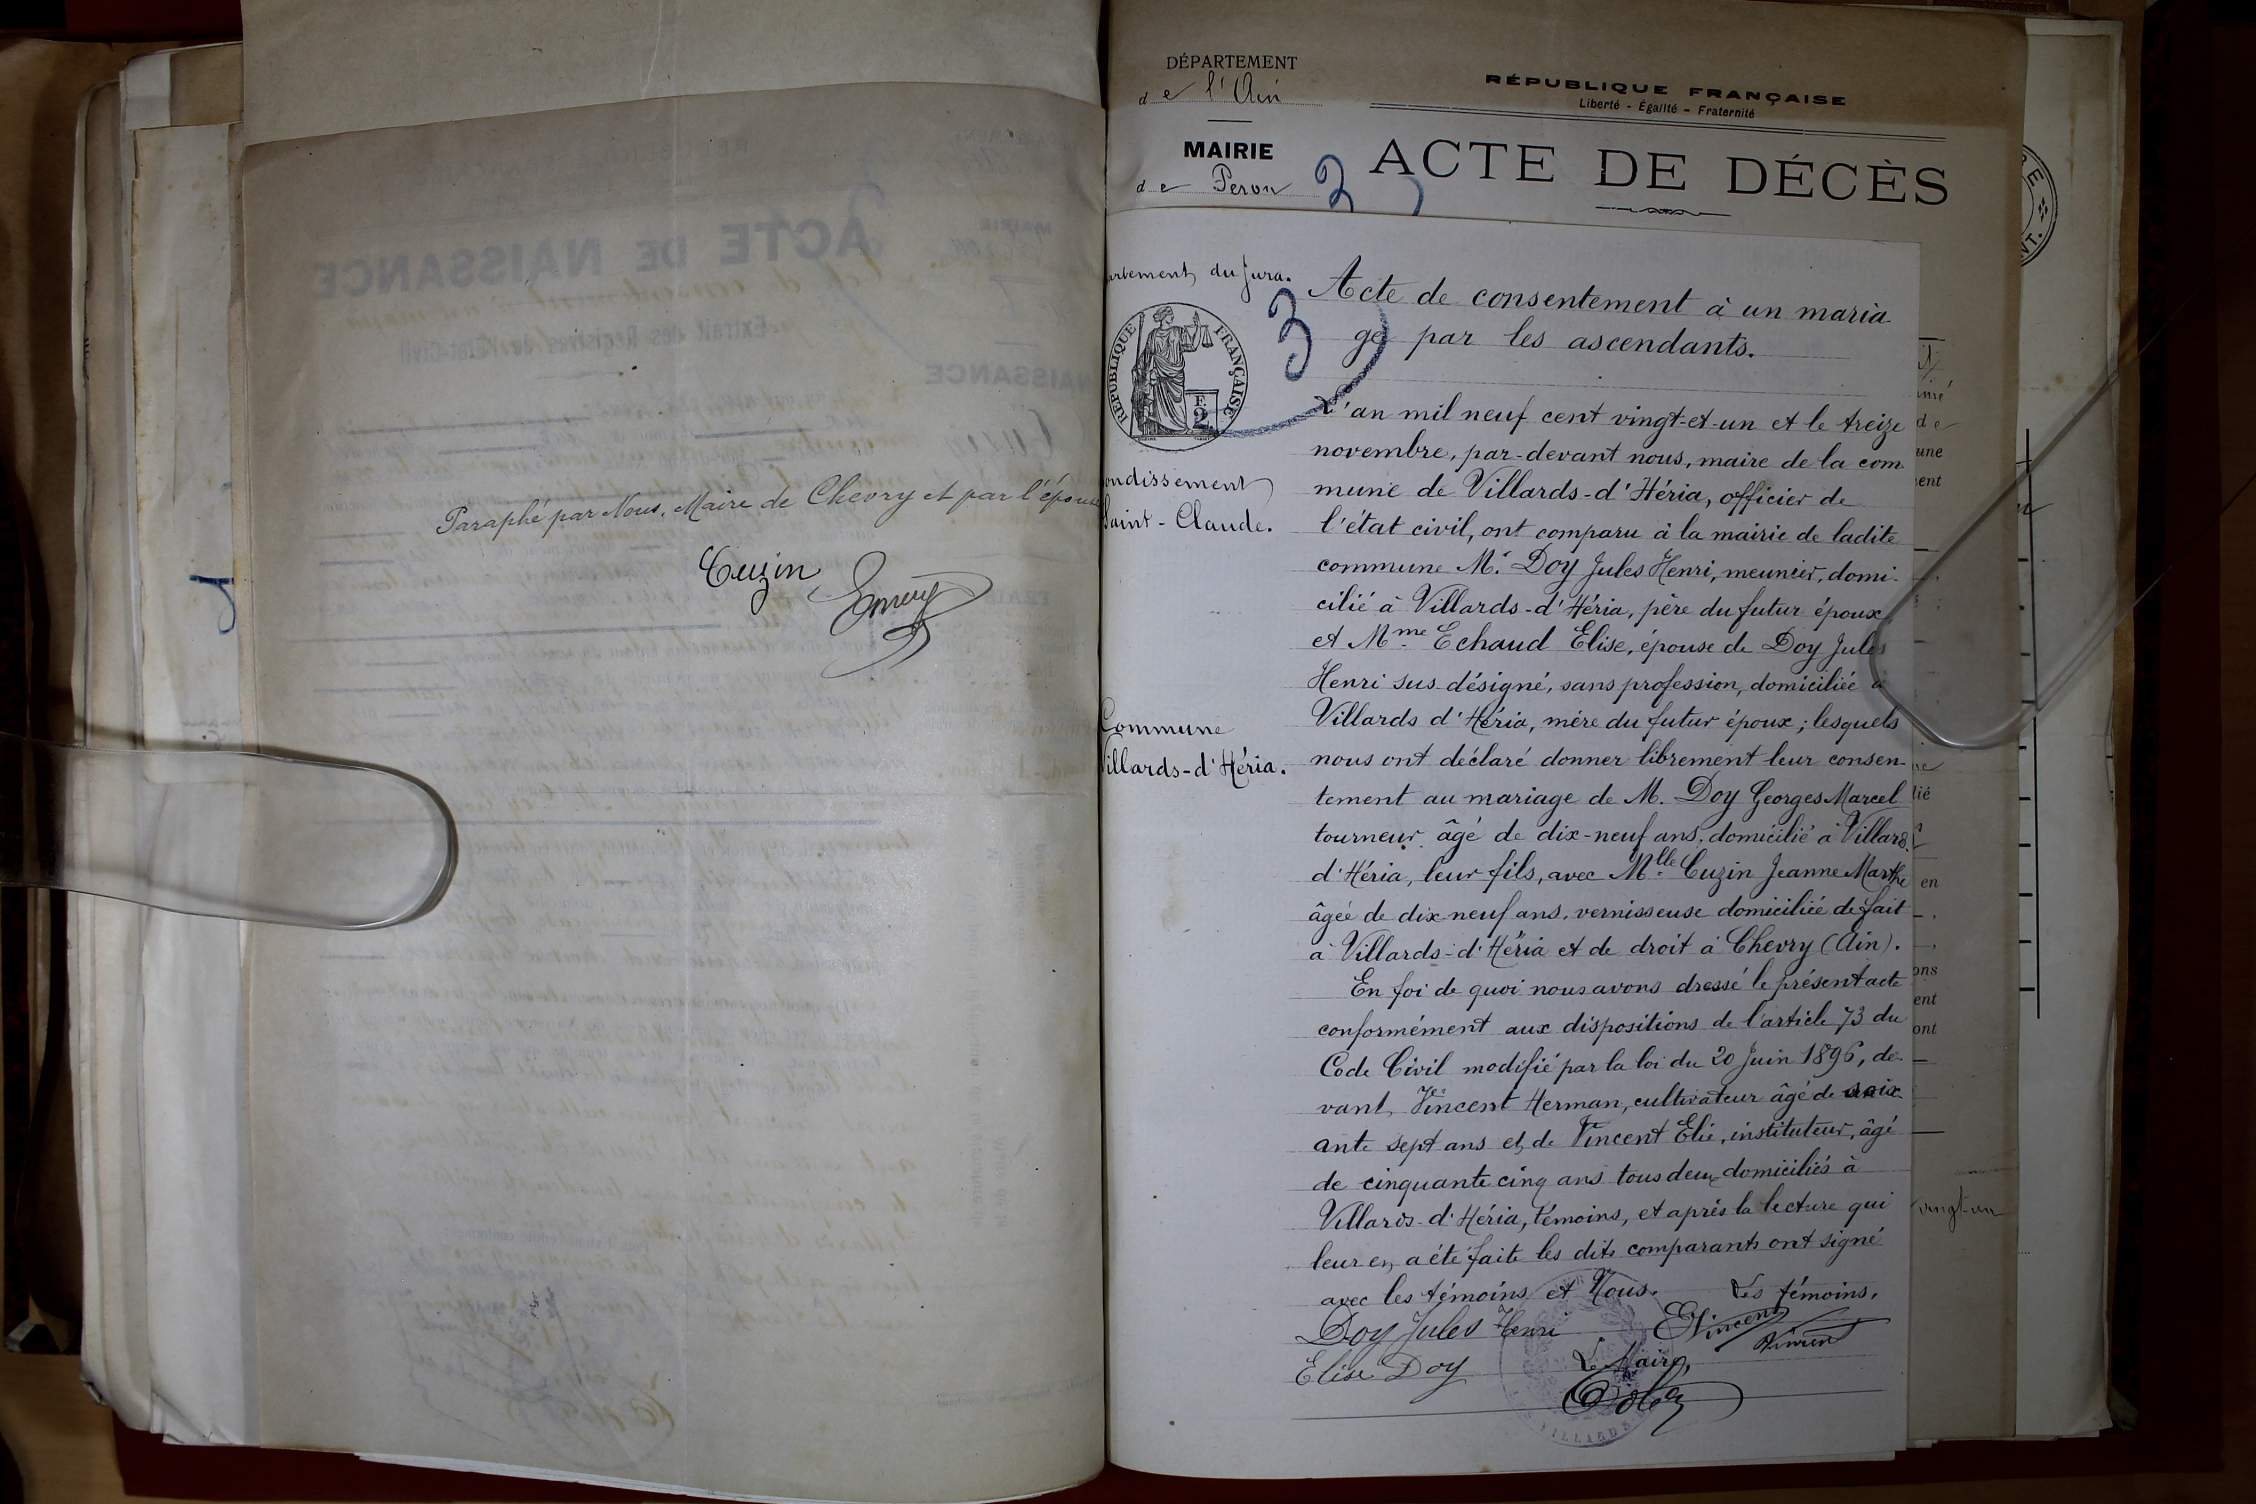 Paraphé par Nous, Maire de Chevry et par l'épouse
Cuzin
DÉPARTEMENT
de l'Ain
MAIRIE
de Peron
RÉPUBLIQUE FRANÇAISE
Liberté - Égalité - Fraternité
2
ACTE DE DÉCÈS
artement du Jura.
RÉPUBLIQUE FRANÇAISE
F.
2
3
ondissement
Saint-Claude.
Commune
Villards-d'Héria.
Acte de consentement à un maria
ge par les ascendants.
L'an mil neuf cent vingt-et-un et le treize
novembre, par-devant nous, maire de la com
mune de Villards-d'Héria, officier de
l'état civil, ont comparu à la mairie de ladite
commune Mr. Doy Jules Henri, meunier, domi-
cilié à Villards-d'Héria, père du futur époux
et Mme Echaud Elise, épouse de Doy Jules
Henri sus désigné, sans profession, domiciliée à
Villards d'Héria, mère du futur époux; lesquels
nous ont déclaré donner librement leur consen-
tement au mariage de M. Doy Georges Marcel
tourneur âgé de dix-neuf ans, domicilié à Villards.
d'Héria, leur fils, avec Mlle Cuzin Jeanne Marthe
âgée de dix-neuf ans, vernisseuse domiciliée de fait
à Villards-d'Héria et de droit à Chevry (Ain).
En foi de quoi nous avons dressé le présent acte
conformément aux dispositions de l'article 73 du
Code Civil modifié par la loi du 20 Juin 1896, de-
vant, Vincent Herman, cultivateur âgé de soix
ante sept ans et, de Vincent Elie, instituteur, âgé
de cinquante cinq ans tous deux domiciliés à
Villards-d'Héria, témoins, et après la lecture qui
leur en a été faite les dits comparants ont signé
avec les témoins et Nous. Les témoins,
Doy Jules Henri
EVincent
Vincent
Elise Doy
Le Maire,
vingt-un